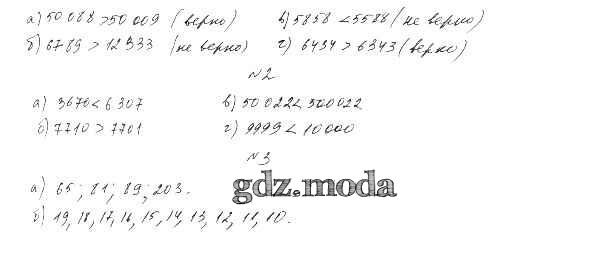 а) 50 088 > 50 009 (верно) в) 5858 < 5588 (не верно)
б) 6789 > 12 333 (не верно) г) 6434 > 6343 (верно)
№2
а) 3670 < 6 307 в) 50 022 < 500022
б) 7710 > 7701 г) 9999 < 10 000
№3
а) 65; 81; 89; 203.
gdz.moda
б) 19, 18, 17, 16, 15, 14, 13, 12, 11, 10.